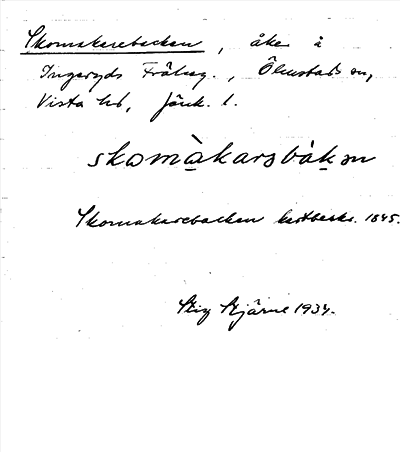 Skomakarebacken, åker å
Ingaryds Frälseg., Ölmstads sn,
Vista hd, Jönk. l.
skomàkarsbàkən
Skomakarebacken kartbeskr. 1845.
Stig Stjärne 1934.